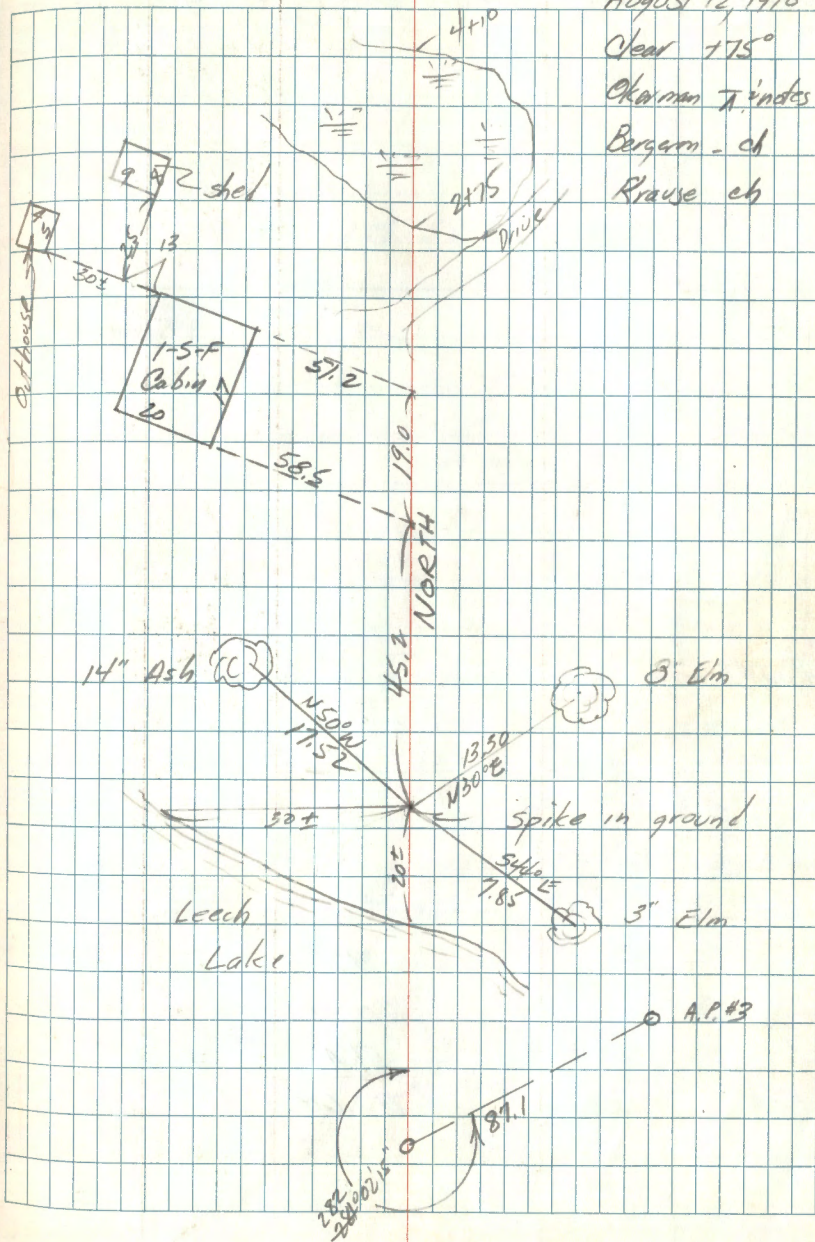 August 12, 19
Clear +75°
Okerman notes
4+10
Bergam - ch
Krause ch
9 8 shed
2+75
Drive
4 5
25
13
30±
Outhouse
1-S-F
Cabin 17
20
57.2
19.0
58.5
NORTH
45.2
14" Ash
8" Elm
N50°W
17.52
13.50
N30°E
30±
Spike in ground
20±
7.85
3" Elm
Leech
Lake
A.P. #3
87.1
282
02'15"